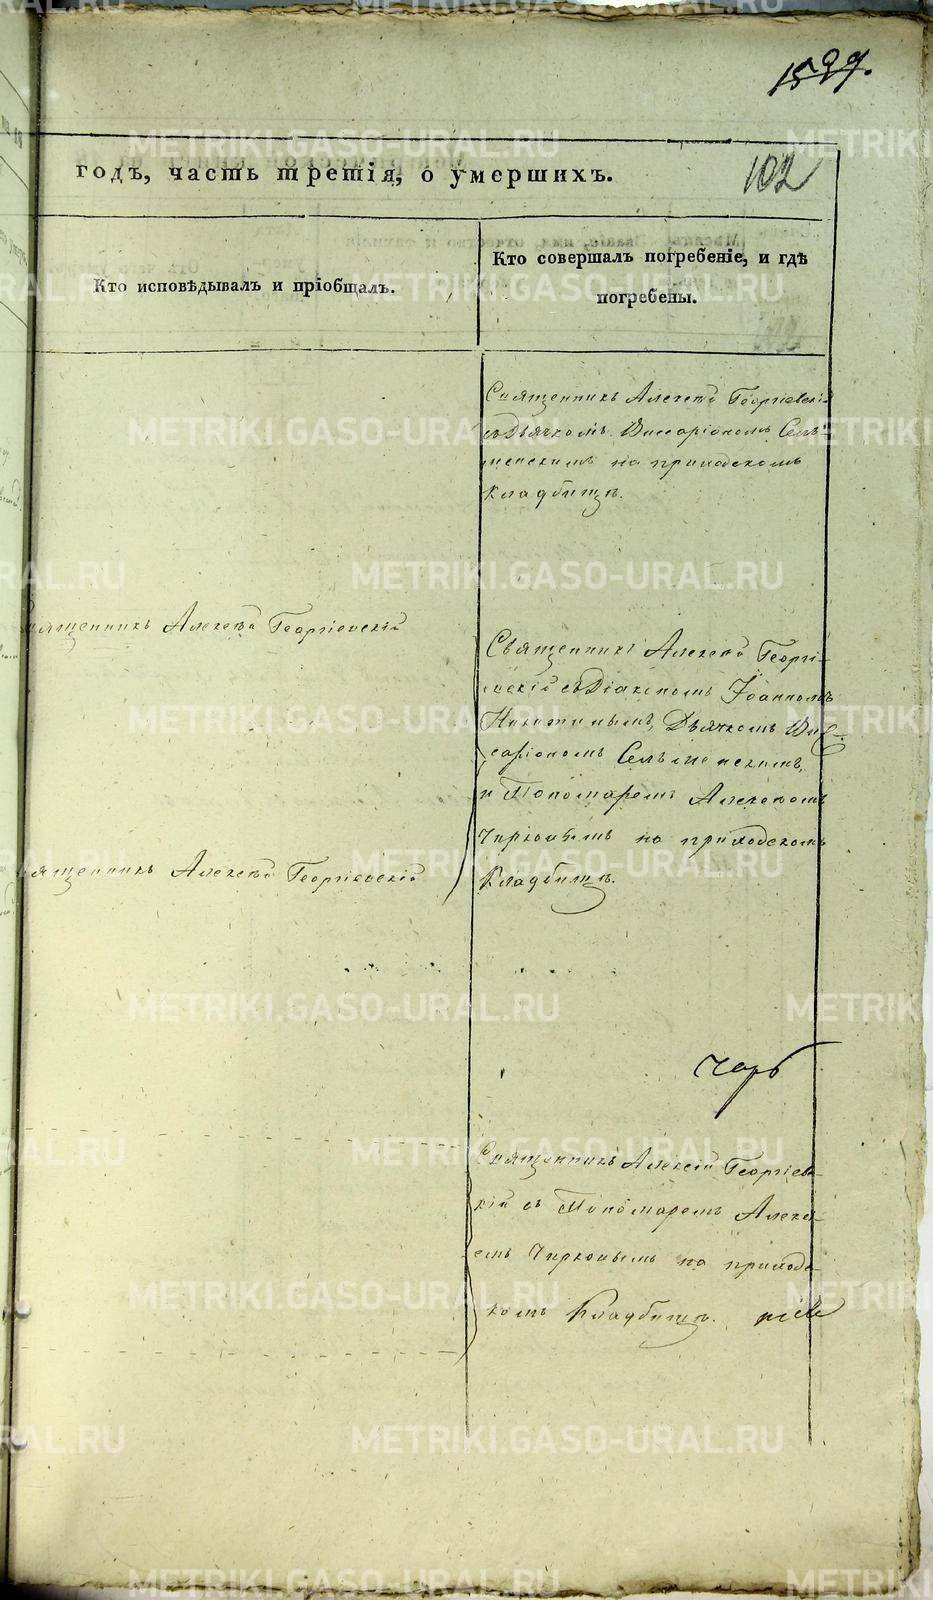 1599.
годъ, часть третія, о умершихъ.
102
Кто исповѣдывалъ и пріобщалъ.
Кто совершалъ погребеніе, и гдѣ
погребены.
Священникъ Алексѣй Георгіевскій
съ Дьячкомъ Виссаріономъ Сель-
менскимъ на приходскомъ
Кладбищѣ.
Священникъ Алексѣй Георгіевскій
Священникъ Алексѣй Георгі-
евскій съ Діакономъ Іоанномъ
Никитинымъ, Дьячкомъ Вис-
саріономъ Сельменскимъ,
и Пономаремъ Алексѣемъ
Чирковымъ на приходскомъ
Кладбищѣ.
Священникъ Алексѣй Георгіевскій
Священникъ Алексій Георгіев-
скій съ Пономаремъ Алексѣ-
емъ Чирковымъ на приход-
скомъ Кладбищѣ.
METRIKI.GASO-URAL.RU